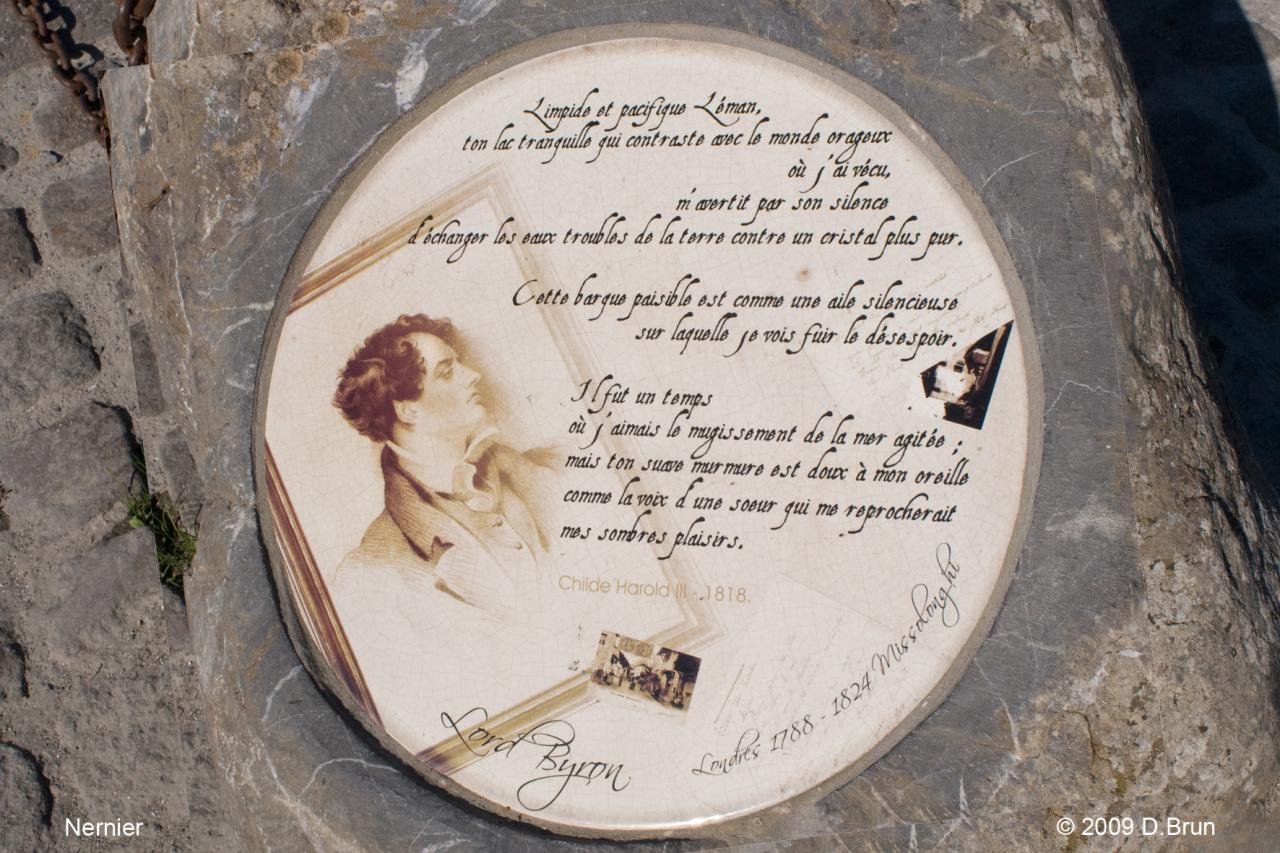 Limpide et pacifique Léman,
ton lac tranquille qui contraste avec le monde orageux
où j'ai vécu,
m'avertit par son silence
d'échanger les eaux troubles de la terre contre un cristal plus pur.
Cette barque paisible est comme une aile silencieuse
sur laquelle je vois fuir le désespoir.
Il fut un temps
où j'aimais le mugissement de la mer agitée ;
mais ton suave murmure est doux à mon oreille
comme la voix d'une soeur qui me reprocherait
mes sombres plaisirs.
Childe Harold III - 1818.
Lord Byron
Londres 1788 - 1824 Missolonghi
Nernier
© 2009 D.Brun